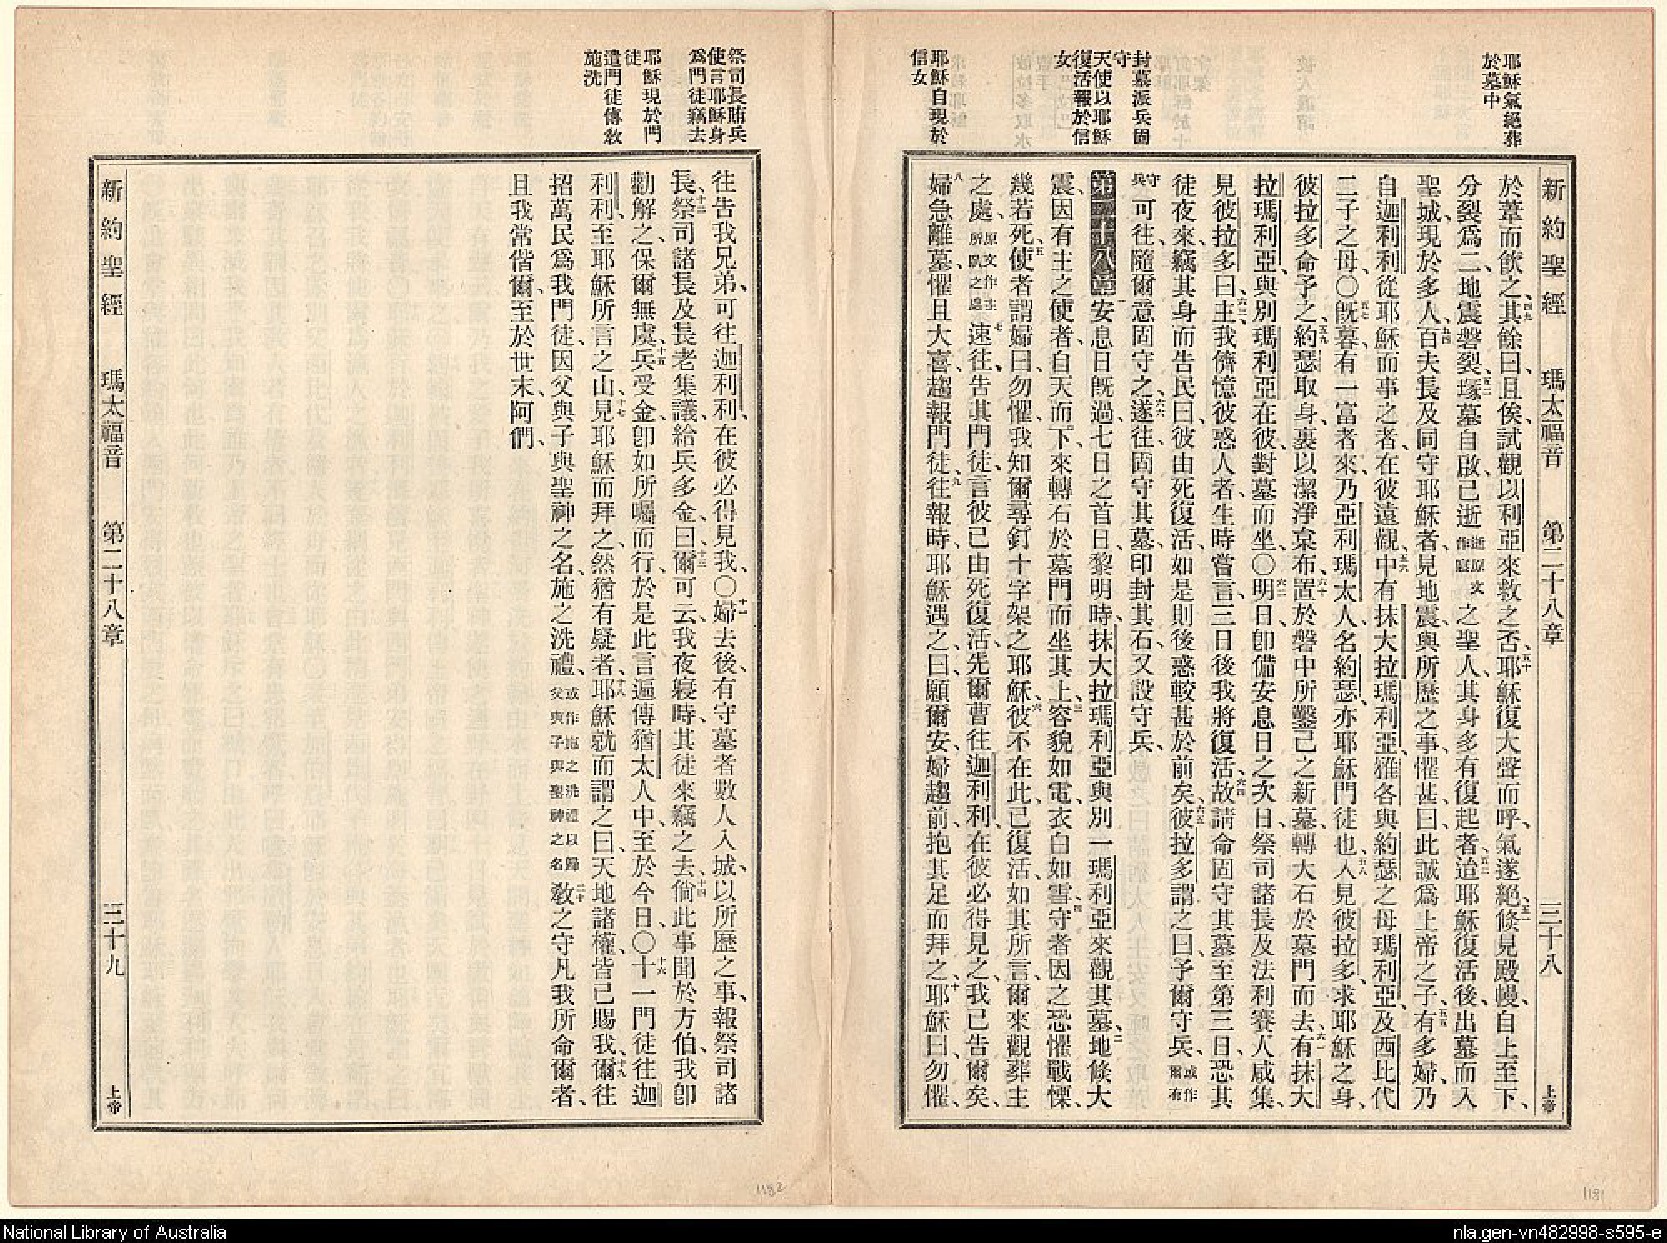 新約聖經 瑪太福音 第二十八章 三十八 上帝
耶穌氣絕葬
於墓中
封墓派兵固
守
天使以耶穌
復活報於信
女
耶穌自現於
信女
於葦而飲之、四九其餘曰、且俟、試觀以利亞來救之否、五十耶穌復大聲而呼、氣遂絕、五一倐見殿幔自上至下、
分裂爲二、地震磐裂、五二塚墓自啟、已逝逝原文作寢之聖人、其身多有復起者、五三迨耶穌復活後、出墓而入
聖城、現於多人、五四百夫長及同守耶穌者、見地震與所歷之事、懼甚、曰、此誠爲上帝之子、五五有多婦、乃
自迦利利從耶穌而事之者、在彼遠觀、五六中有抹大拉瑪利亞、雅各與約瑟之母瑪利亞、及西比代
二子之母、〇五七旣暮、有一富者來、乃亞利瑪太人、名約瑟、亦耶穌門徒也、五八入見彼拉多、求耶穌之身、
彼拉多命予之、五九約瑟取身、裹以潔淨枲布、六十置於磐中所鑿己之新墓、轉大石於墓門而去、六一有抹大
拉瑪利亞、與別瑪利亞在彼、對墓而坐、〇六二明日、卽備安息日之次日、祭司諸長及法利賽人咸集、
見彼拉多曰、六三主、我儕憶彼惑人者、生時嘗言、三日後我將復活、六四故請命固守其墓、至第三日、恐其
徒夜來、竊其身而告民曰、彼由死復活、如是則後惑較甚於前矣、六五彼拉多謂之曰、予爾守兵、或作爾有
守兵可往隨爾意固守之、六六遂往固守其墓、印封其石、又設守兵、
第二十八章 一安息日旣過、七日之首日、黎明時、抹大拉瑪利亞、與別一瑪利亞、來觀其墓、二地倐大
震、因有主之使者、自天而下、來轉石於墓門而坐其上、三容貌如電、衣白如雪、四守者因之恐懼戰慄、
幾若死、五使者謂婦曰、勿懼、我知爾尋釘十字架之耶穌、六彼不在此、已復活、如其所言、爾來觀葬主
之處、原文作主所臥之處七速往告其門徒、言彼已由死復活、先爾曹往迦利利、在彼必得見之、我已告爾矣、
八婦急離墓、懼且大喜、趨報門徒、九往報時、耶穌遇之曰、願爾安、婦趨前抱其足而拜之、十耶穌曰、勿懼、
1181
祭司長賄兵
使言耶穌身
爲門徒竊去
耶穌現於門
徒
遣門徒傳敎
施洗
往告我兄弟、可往迦利利、在彼必得見我、〇十一婦去後、有守墓者數人入城、以所歷之事、報祭司諸
長、十二祭司諸長及長老集議、給兵多金、曰、十三爾可云、我夜寢時、其徒來竊之去、十四倘此事聞於方伯、我卽
勸解之、保爾無虞、十五兵受金、卽如所囑而行、於是此言遍傳猶太人中、至於今日、〇十六十一門徒往迦
利利、至耶穌所言之山、十七見耶穌而拜之、然猶有疑者、十八耶穌就而謂之曰、天地諸權、皆已賜我、十九爾往
招萬民爲我門徒、因父與子與聖神之名、施之洗禮、或作施之洗禮以歸父與子與聖神之名二十敎之守凡我所命爾者、
且我常偕爾、至於世末、阿們、
新約聖經 瑪太福音 第二十八章 三十九 上帝
1182
National Library of Australia
nla.gen-vn482998-s595-e